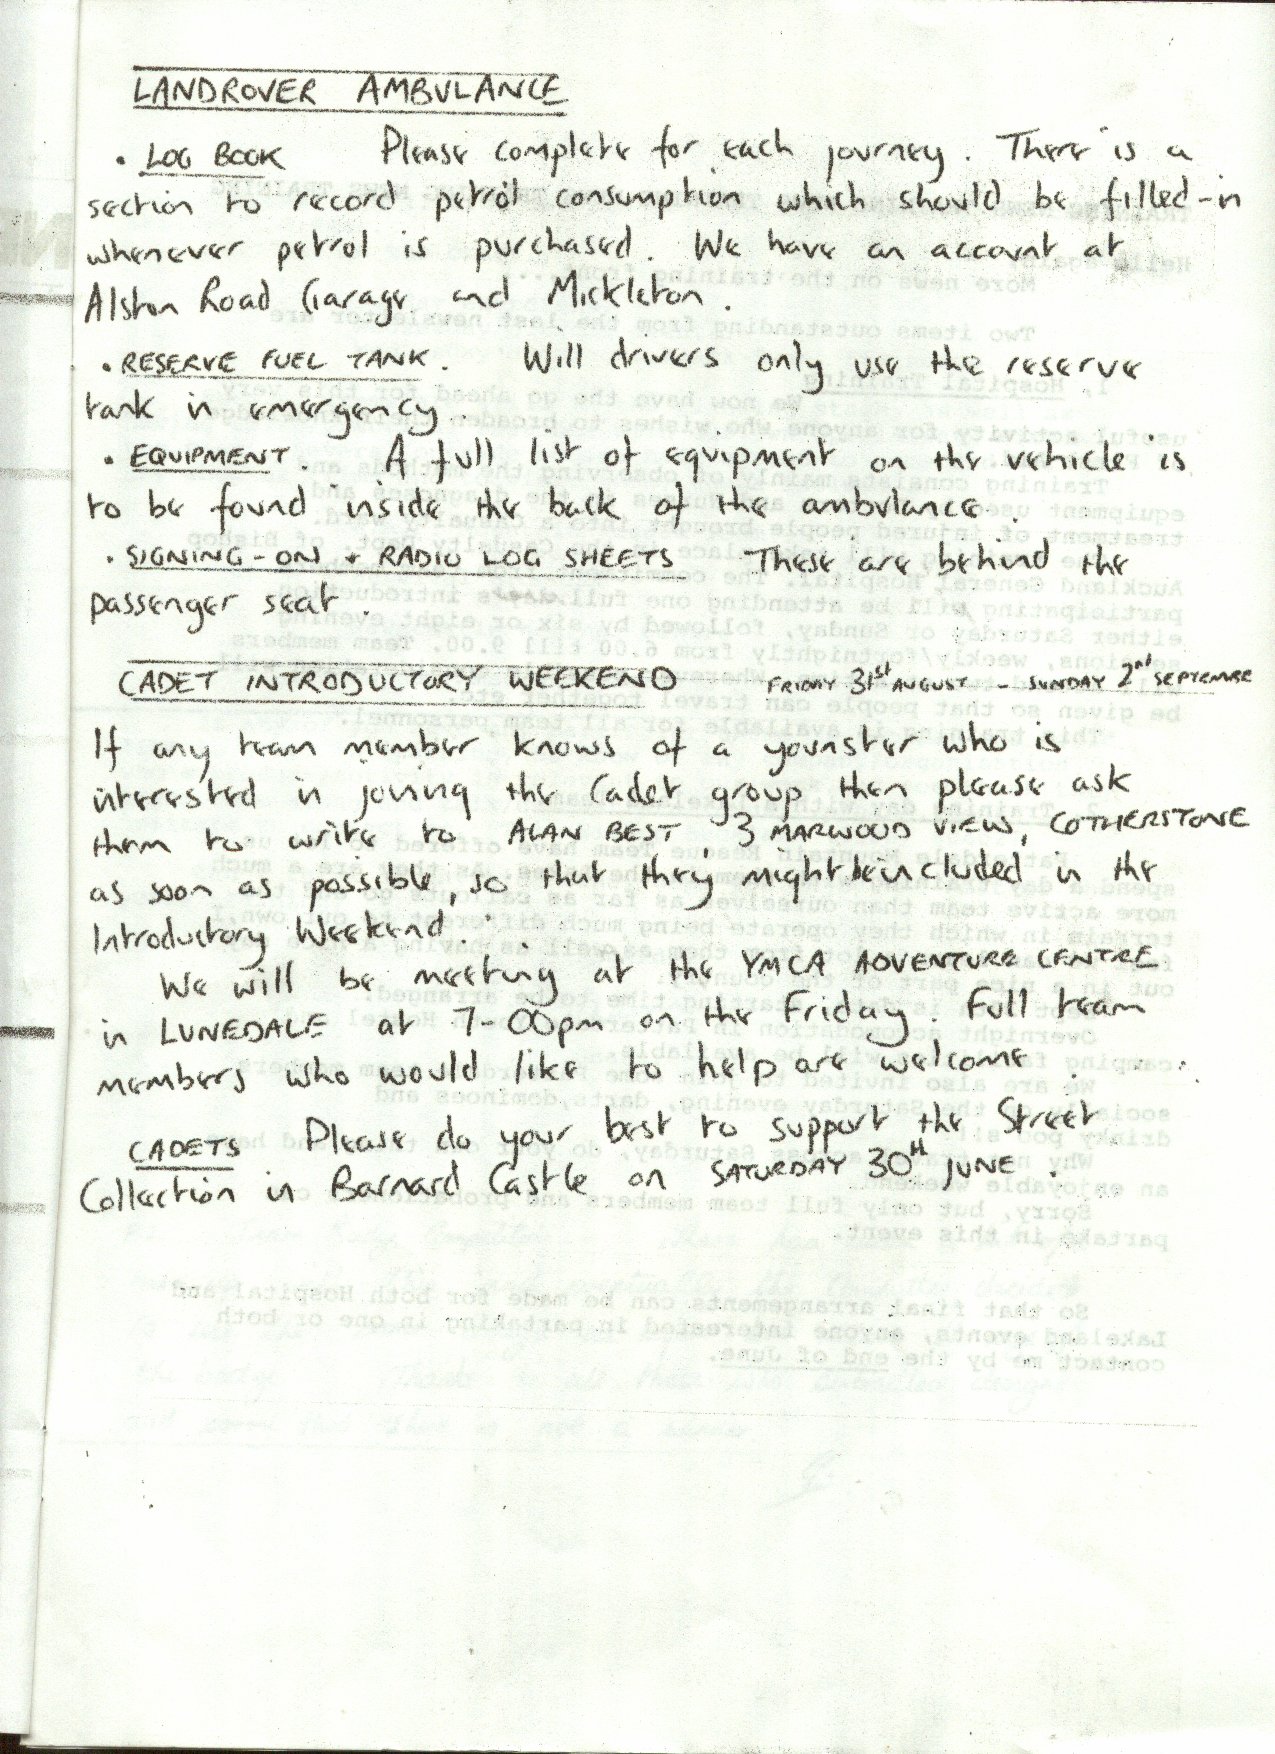 LANDROVER AMBULANCE
• LOG BOOK Please complete for each journey. There is a
section to record petrol consumption which should be filled-in
whenever petrol is purchased. We have an account at
Alston Road Garage and Mickleton.
• RESERVE FUEL TANK. Will drivers only use the reserve
tank in emergency.
• EQUIPMENT. A full list of equipment on the vehicle is
to be found inside the back of the ambulance.
• SIGNING-ON + RADIO LOG SHEETS These are behind the
passenger seat.
CADET INTRODUCTORY WEEKEND FRIDAY 31st AUGUST - SUNDAY 2nd SEPTEMBER
If any team member knows of a younster who is
interested in joining the Cadet group then please ask
them to write to ALAN BEST, 3 MARWOOD VIEW, COTHERSTONE
as soon as possible, so that they might be included in the
Introductory Weekend.
We will be meeting at the YMCA ADVENTURE CENTRE
in LUNEDALE at 7-00pm on the Friday. Full team
members who would like to help are welcome.
CADETS Please do your best to support the Street
Collection in Barnard Castle on SATURDAY 30th JUNE.